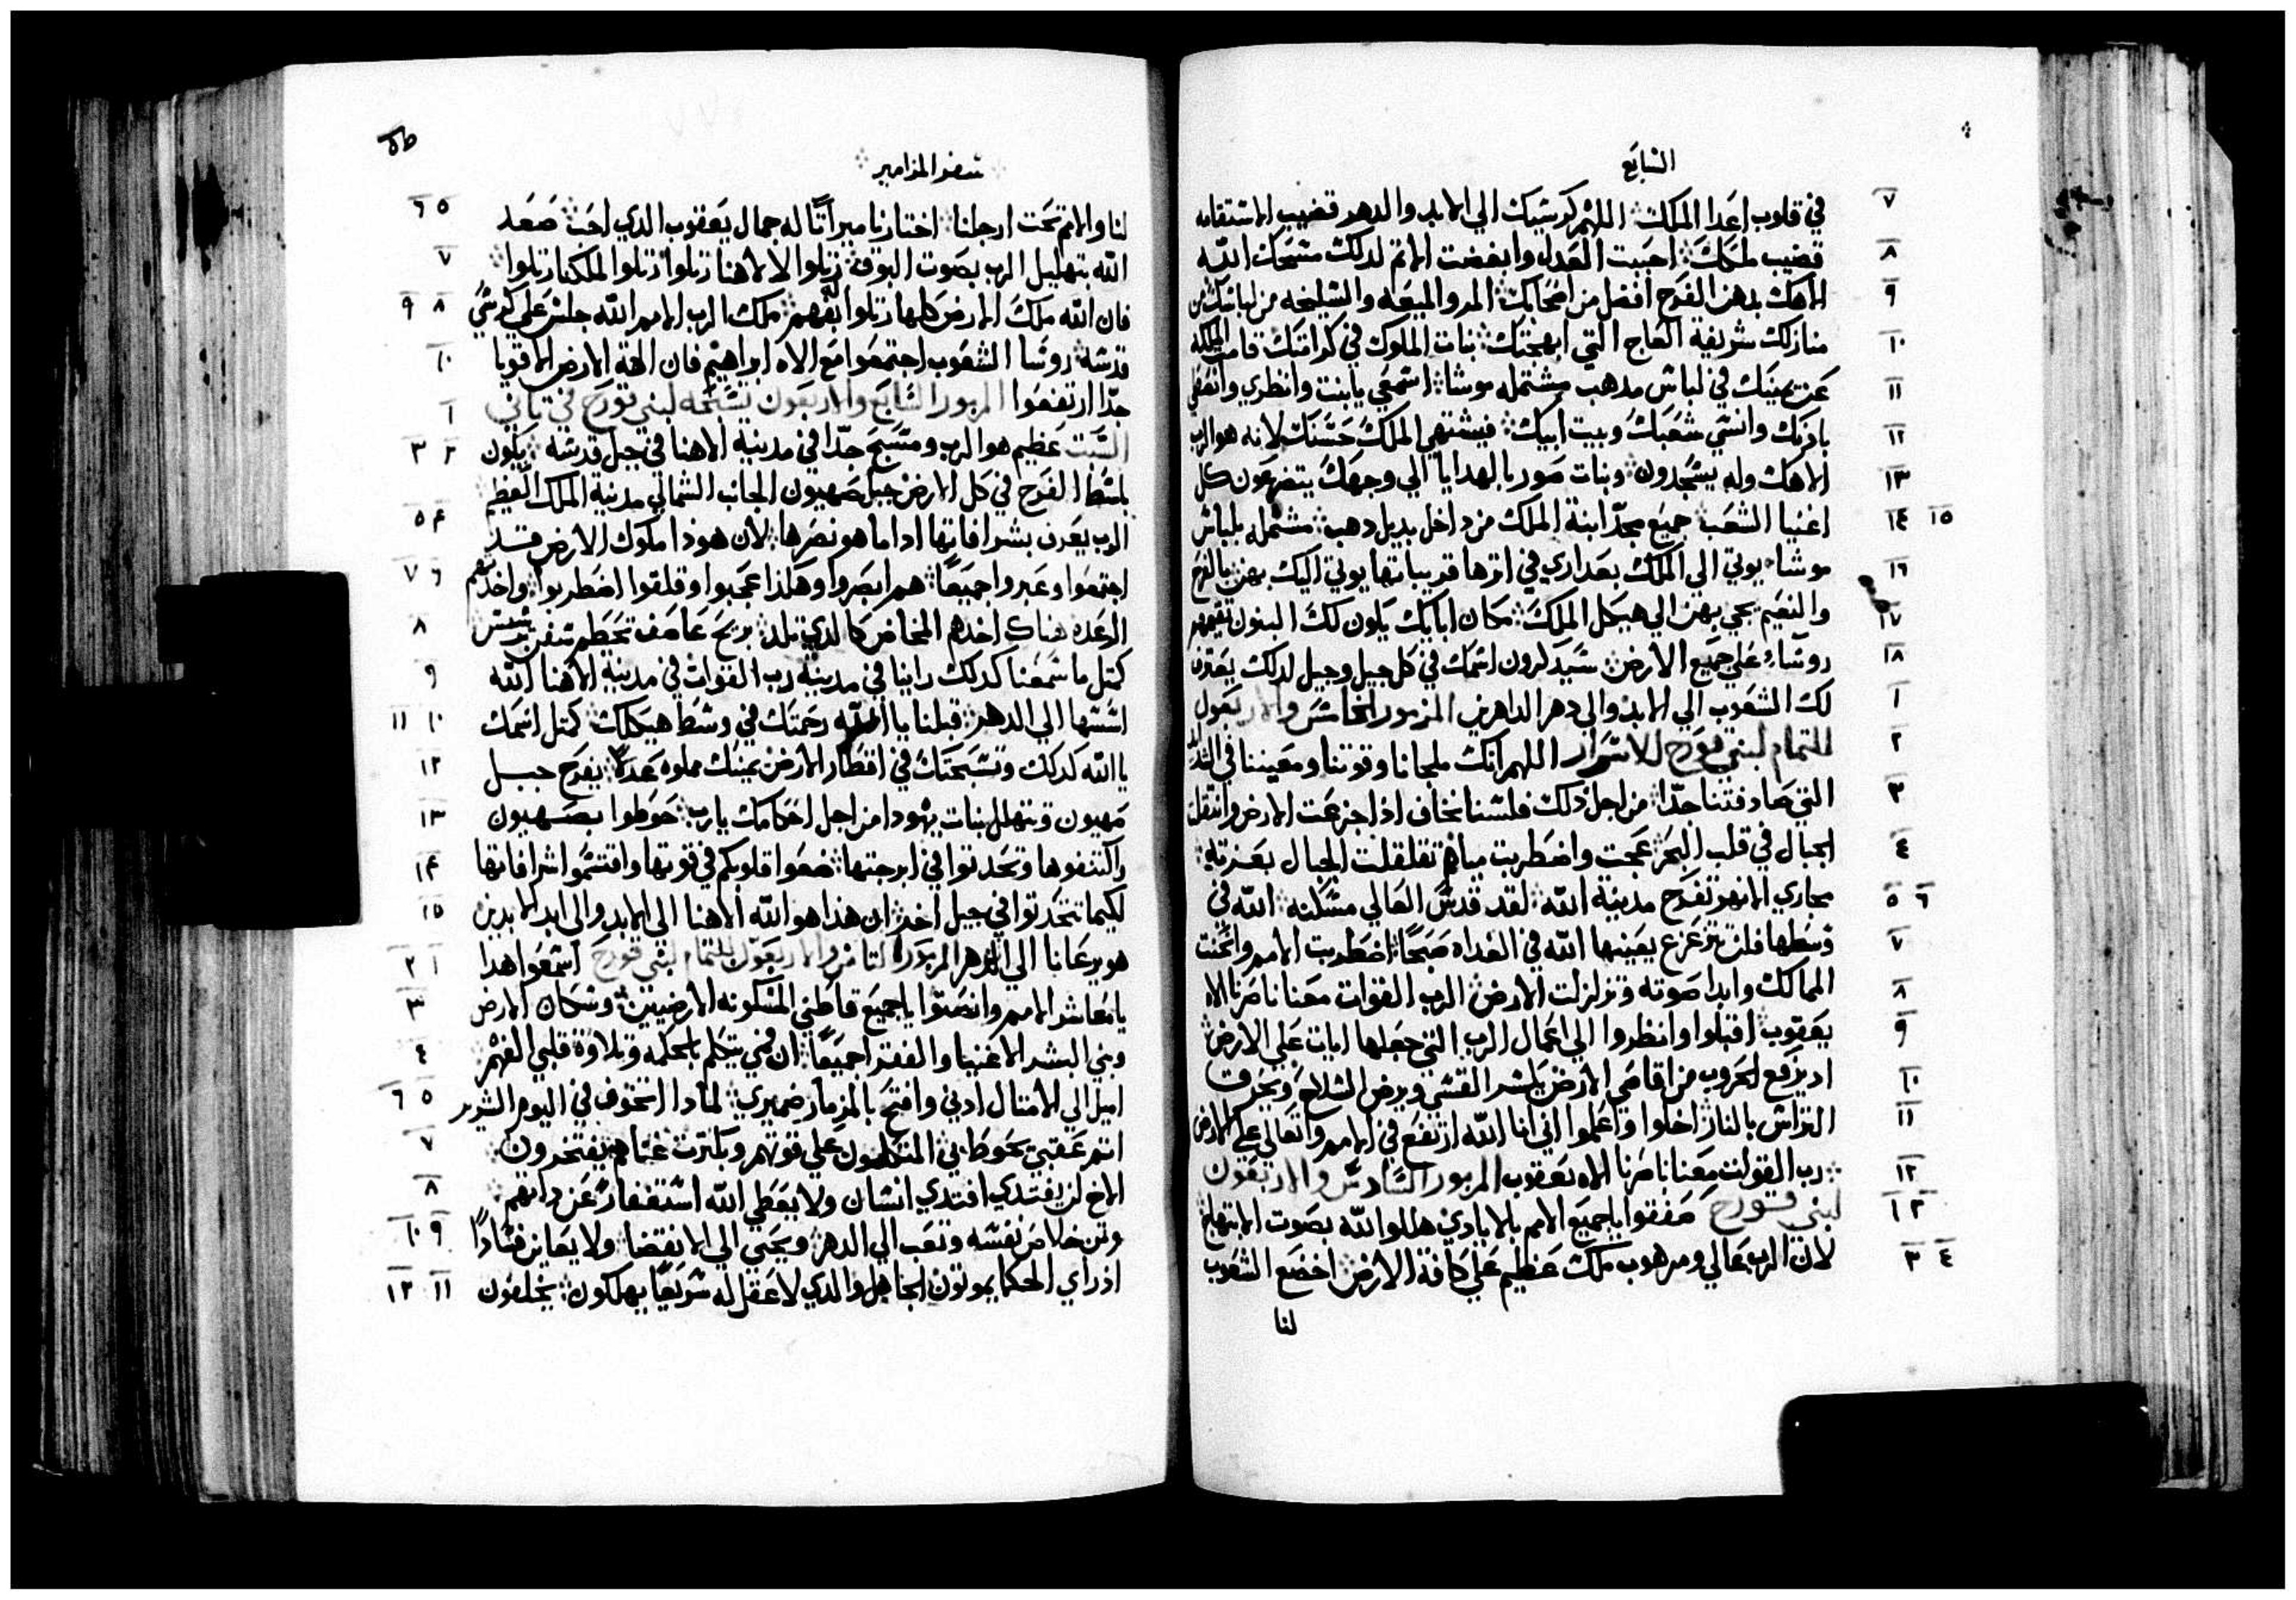 السابع
٧ في قلوب اعدا الملك ؞ اللهم كرسيك الي الابد والدهر قضيب الاستقامه
٨ قضيب ملكك ؞ احببت العدل وابغضت الاثم لدلك مسحك الله
٩ الاهك بدهن الفرح افضل من اصحابك ؞ المر والميعه والسليخه من لباسك من
١٠ منازلك شريفة العاج التي ابهجتك ؞ بنات الملوك في كرامتك قامت الملكه
١١ عن يمينك في لباس مدهب مشتمله موشا ؞ اسمعي يا بنت وانظري وانصتي
١٢ بادنك وانسي شعبك وبيت ابيك ؞ فيشتهي الملك حسنك لانه هو الرب
١٣ الاهك وله يسجدون ؞ وبنات صور بالهدايا الي وجهك يتضرعون كل
١٤ ١٥ اغنيا الشعب ؞ جميع مجد ابنة الملك من داخل بديل دهب ؞ مشتمله بلباس
١٦ موشا ؞ يوتي الي الملك بعداري في اثرها قريباتها يوتي اليك بهن بالفرح
١٧ والنعيم يجي بهن الي هيكل الملك ؞ مكان ابايك يكون لك البنون تقيمهم
١٨ روساء علي جميع الارض ؞ سيدكرون اسمك في كل جيل وجيل لدلك يعترف
١ لك الشعوب الي الابد والي دهر الداهرين المزمور الخامس والاربعون
٢ للتمام لبني قورح للاسرار اللهم انك ملجانا وقوتنا ومعيننا في الشدايد
٣ التي صادفتنا جدّا ؞ من اجل ذلك فلسنا نخاف اذا جزعت الارض وانتقلت
٤ الجبال في قلب البحر ؞ عجت واضطربت مياههم تقلقلت الجبال بعزته ؞
٥ ٦ مجاري الانهر تفرح مدينة الله ؞ لقد قدس العالي مسكنه ؞ الله في
٧ وسطها فلن تتزعزع يعينها الله في الغداه صبحًا ؞ اضطربت الامم وانحنت
٨ الممالك وابدا صوته وتزلزلت الارض ؞ الرب القوات معنا ناصرنا الاه
٩ يعقوب ؞ اقبلوا وانظروا الي اعمال الرب التي جعلها ايات علي الارض ؞
١٠ اد يرفع الحروب من اقاصي الارض يكسر القسي ويرض السلاح ويحرق
١١ التراس بالنار ؞ اخلوا واعلموا اني انا الله ارتفع في الامم واتعالي علي الارض
١٢ ؞ رب القوات معنا ناصرنا الاه يعقوب المزمور السادس والاربعون
١ ٢ لبني قورح صفقوا يا جميع الامم بالايادي هللوا الله بصوت الابتهاج
٣ ٤ لان الرب عالي ومرهوب ملك عظيم علي كافة الارض ؞ اخضع الشعوب
لنا
سفر المزامير ؞
٥ ٦ لنا والامم تحت ارجلنا ؞ اختارنا ميراثًا له جمال يعقوب الدي احب ؞ صعد
٧ الله بتهليل الرب بصوت البوق ؞ رتلوا لالاهنا رتلوا رتلوا لملكنا رتلوا ؞
٨ ٩ فان الله ملك الارض كلها رتلوا بفهم ؞ ملك الرب الامم الله جلس علي كرسي
١٠ قدسه ؞ روسا الشعوب اجتمعوا مع الاه ابراهيم فان الهة الارض الاقويا
١ جدّا ارتفعوا المزمور السابع والاربعون تسبحه لبني قورح في ثاني
٢ ٣ السبت عظيم هو الرب ومسبح جدّا في مدينة الاهنا في جبل قدسه ؞ يكون
باسط الفرح في كل الارض جبل صهيون الجانب الشمالي مدينة الملك العظيم
٤ ٥ الرب يعرف بشرافاتها اداما هو نصرها ؞ لان هودا ملوك الارض قد
٦ ٧ اجتمعوا وعبروا جميعًا ؞ هم ابصروا وهكذا عجبوا وقلقوا اضطربوا ؞ واخدتهم
٨ الرعده هناك اخدهم المخاض كالدي تلد ؞ بريح عاصف تحطم سفن ترسيس
٩ كمثل ما سمعنا كدلك راينا في مدينة رب القوات في مدينة الاهنا الله
١٠ ١١ اسسها الي الدهر ؞ قبلنا يا الله رحمتك في وسط هيكلك ؞ كمثل اسمك
١٢ يا الله كدلك وتسبحتك في اقطار الارض يمينك مملوه عدلًا ؞ يفرح جبل
١٣ صهيون وتتهلل بنات يهودا من اجل احكامك يا رب ؞ حوطوا بصهيون
١٤ واكتنفوها وتحدثوا في ابرجتها ؞ ضعوا قلوبكم في قوتها واقتسموا اشرافاتها
١٥ لكيما تتحدثوا في جيل اخر ؞ ان هذا هو الله الاهنا الي الابد والي ابد الابدين
١ ٢ هو يرعانا الي الدهر المزمور الثامن والاربعون للتمام لبني قورح اسمعوا هدا
٣ يا معاشر الامم وانصتوا يا جميع قاطني المسكونه الارضيين ؞ وسكان الارض
٤ وبني البشر الاغنيا والفقرا جميعًا ؞ ان فمي يتكلم بالحكمه وتلاوة قلبي الفهم
٥ ٦ اميل الي الامثال ادني وافتح بالمزمار ضميري ؞ لمادا اتخوف في اليوم الشرير
٧ اثم عقبي يحوط بي ؞ المتكلمون علي قوتهم وبكثرت غناهم يفتخرون ؞
٨ الاخ لن يفتدي افتدي انسان ولا يعطي الله استغفاره عن داتهم ؞
٩ ١٠ وثمن خلاص نفسه وتعب الي الدهر ؞ ويحيي الي الانقضا ولا يعاين فسادًا
١١ ١٢ اذ راي الحكما يموتون الجاهل والدي لا عقل له سريعًا يهلكون ؞ يخلفون